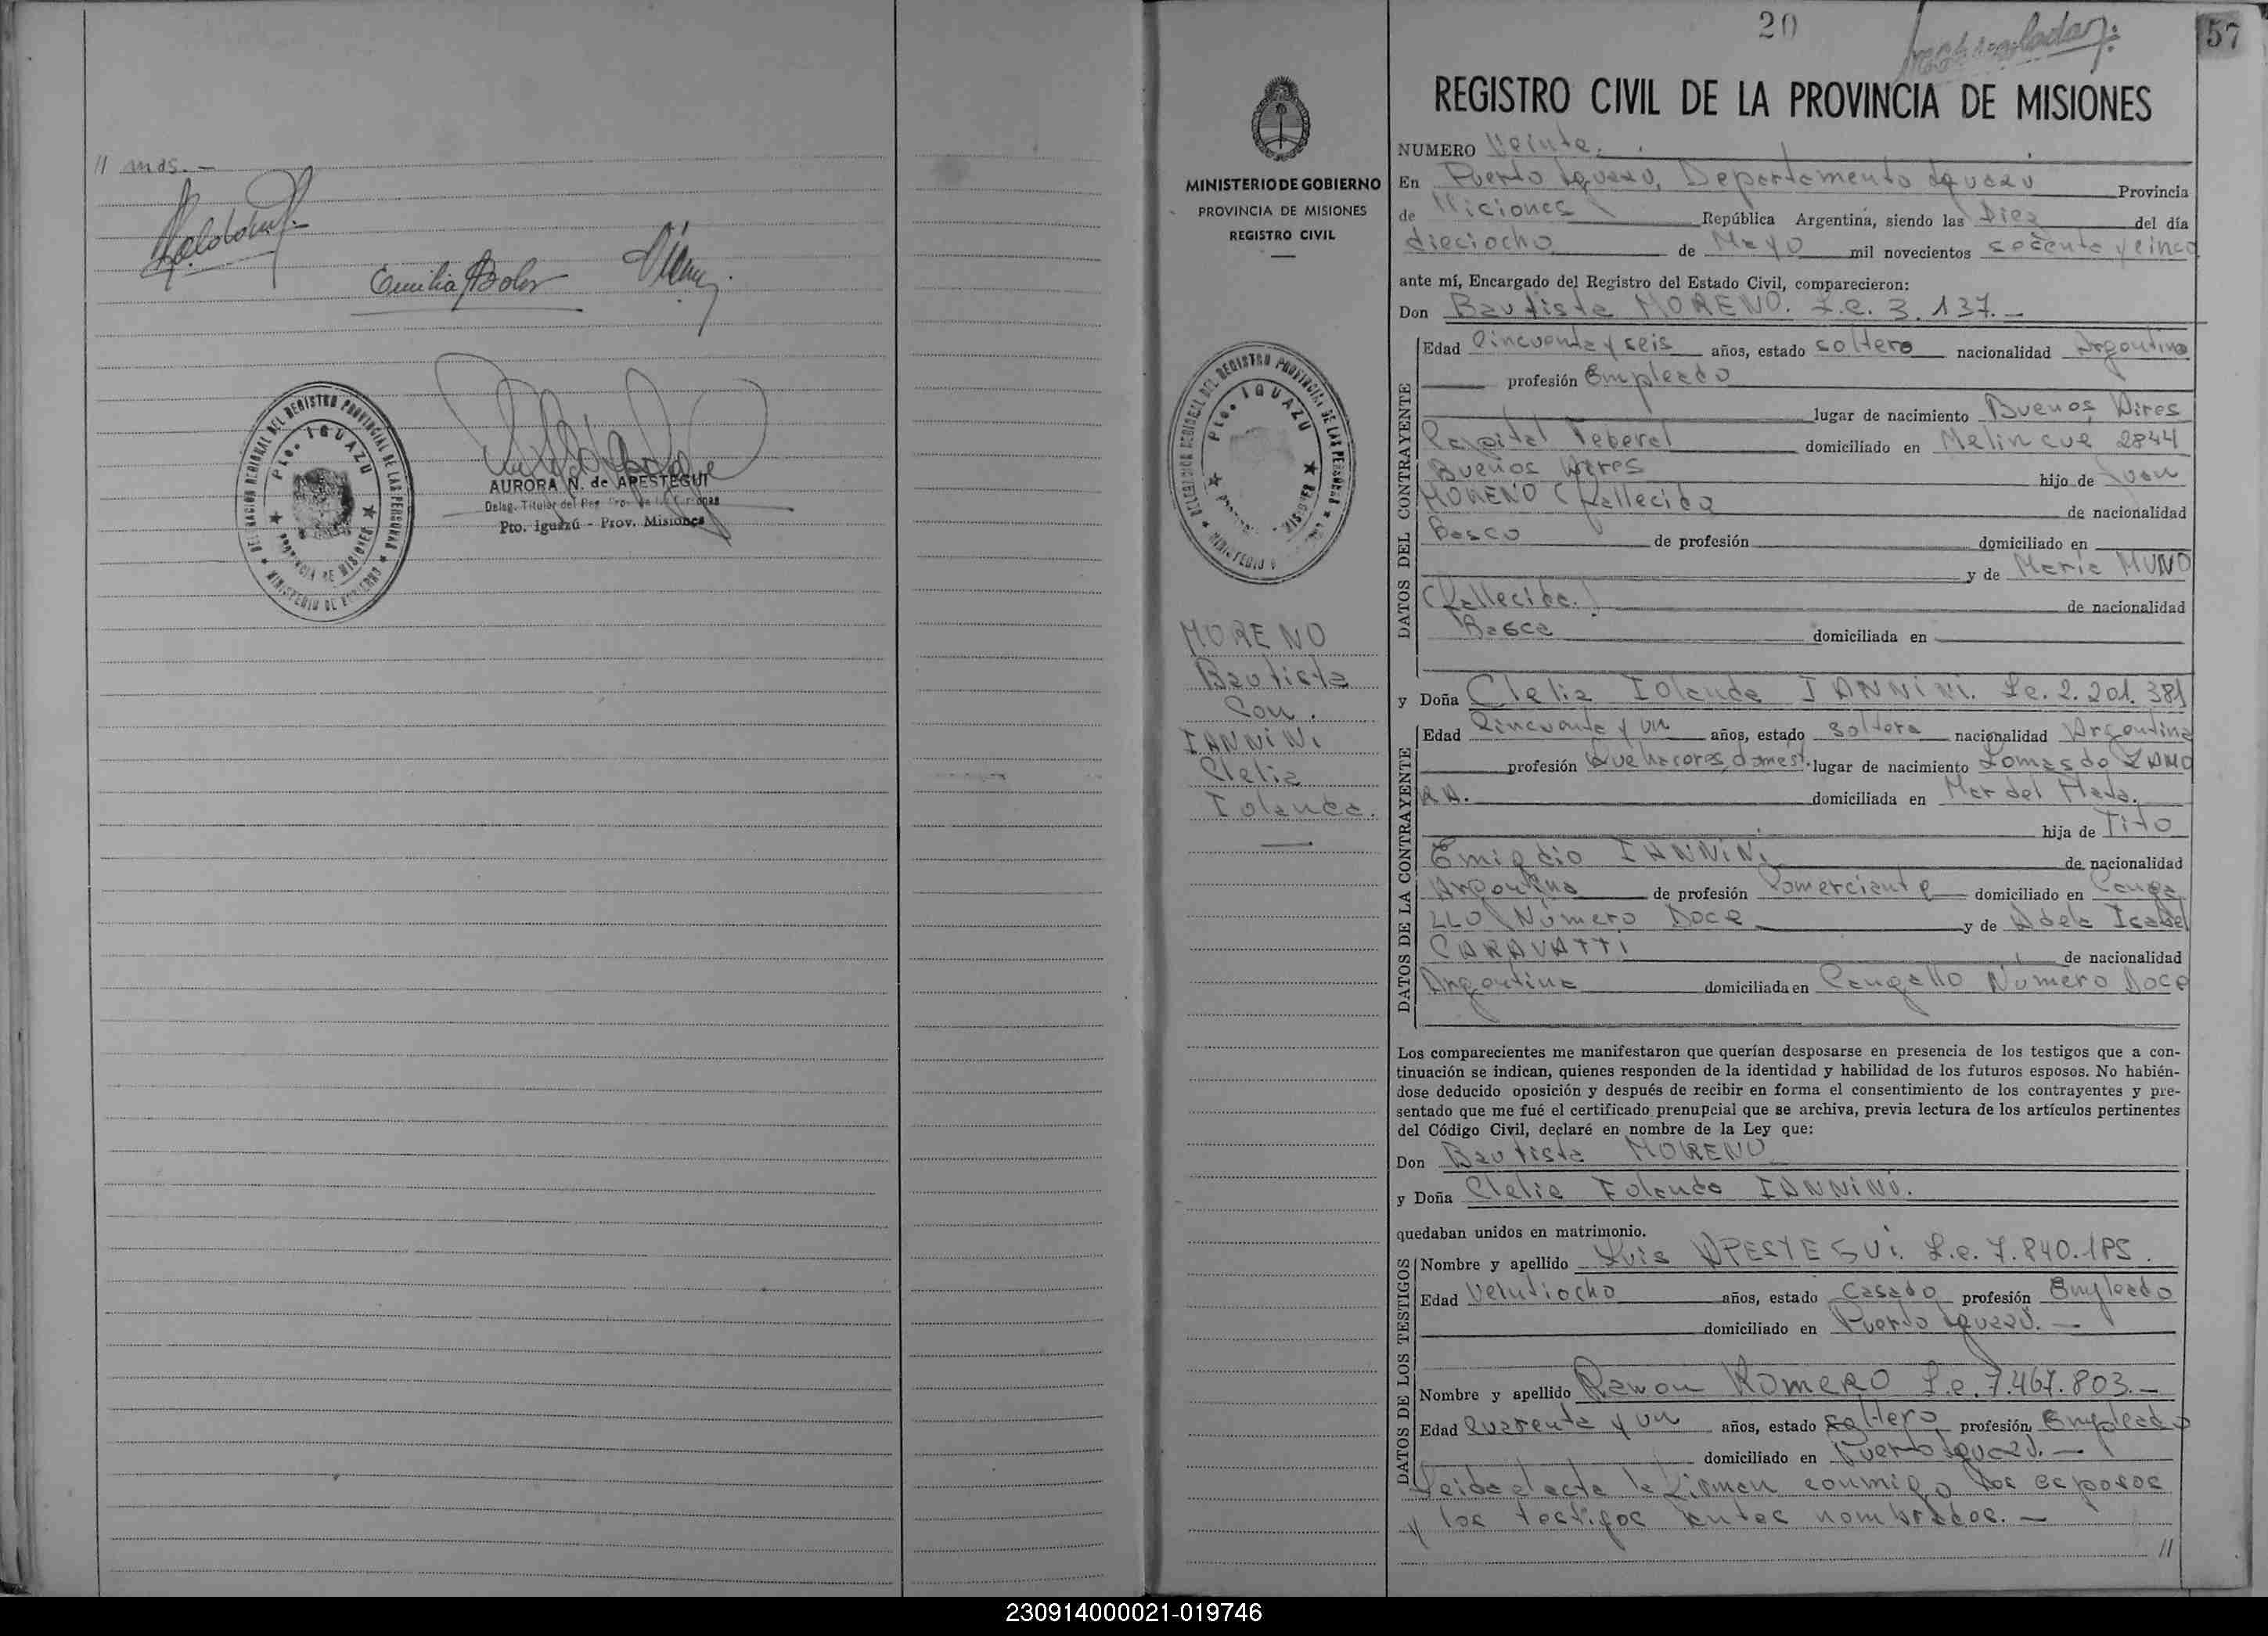 // mas.-
Emilia
DELEGACION REGIONAL DEL REGISTRO PROVINCIAL DE LAS PERSONAS
Pto. IGUAZU
PROVINCIA DE MISIONES
MINISTERIO DE GOBIERNO
AURORA N. de APESTEGUI
Deleg. Titular del
Pto. Iguazú - Prov. Misiones
MINISTERIO DE GOBIERNO
PROVINCIA DE MISIONES
REGISTRO CIVIL
Pto. IGUAZU
MORENO
Bautista
Con.
IANNINI
Clelia
Iolanda.
20
57
REGISTRO CIVIL DE LA PROVINCIA DE MISIONES
NUMERO Veinte.
En Puerto Iguazú, Departamento Iguazú Provincia
de Misiones República Argentina, siendo las Diez del día
dieciocho de Mayo mil novecientos secenta y cinco
ante mí, Encargado del Registro del Estado Civil, comparecieron:
Don Bautista MORENO. L.e. 3.137.-
DATOS DEL CONTRAYENTE
Edad Cincuenta y seis años, estado soltero nacionalidad Argentino
profesión Empleado
lugar de nacimiento Buenos Aires
Capital Federal domiciliado en Melincue 2844
Buenos Aires hijo de Juan
MORENO (fallecido de nacionalidad
Basco de profesión domiciliado en
y de Maria MUNO
(fallecida.) de nacionalidad
Basca domiciliada en
y Doña Clelia Iolanda IANNINI. Le. 2.201.381
DATOS DE LA CONTRAYENTE
Edad Cincuenta y un años, estado Soltera nacionalidad Argentina
profesión Quehaceres domest. lugar de nacimiento Lomas de ZAMO
RA. domiciliada en Mar del Plata.
hija de Tito
Emigdio IANNINI de nacionalidad
Argentino de profesión Comerciante domiciliado en Canga
LLO Número Doce y de Adela Isabel
CARAVATTI de nacionalidad
Argentina domiciliada en Cangallo Número Doce
Los comparecientes me manifestaron que querían desposarse en presencia de los testigos que a con-
tinuación se indican, quienes responden de la identidad y habilidad de los futuros esposos. No habién-
dose deducido oposición y después de recibir en forma el consentimiento de los contrayentes y pre-
sentado que me fué el certificado prenupcial que se archiva, previa lectura de los artículos pertinentes
del Código Civil, declaré en nombre de la Ley que:
Don Bautista MORENO
y Doña Clelia Iolanda IANNINI.
quedaban unidos en matrimonio.
DATOS DE LOS TESTIGOS
Nombre y apellido Luis APESTEGUI. L.e. 7.840.185.
Edad Veintiocho años, estado Casado profesión Empleado
domiciliado en Puerto Iguazú.-
Nombre y apellido Ramon ROMERO L.e. 7.467.803.-
Edad Cuarenta y un años, estado soltero profesión Empleado
domiciliado en Puerto Iguazú.-
Leida el acta la firman conmigo los esposos
y los testigos antes nombrados.-
//
230914000021-019746